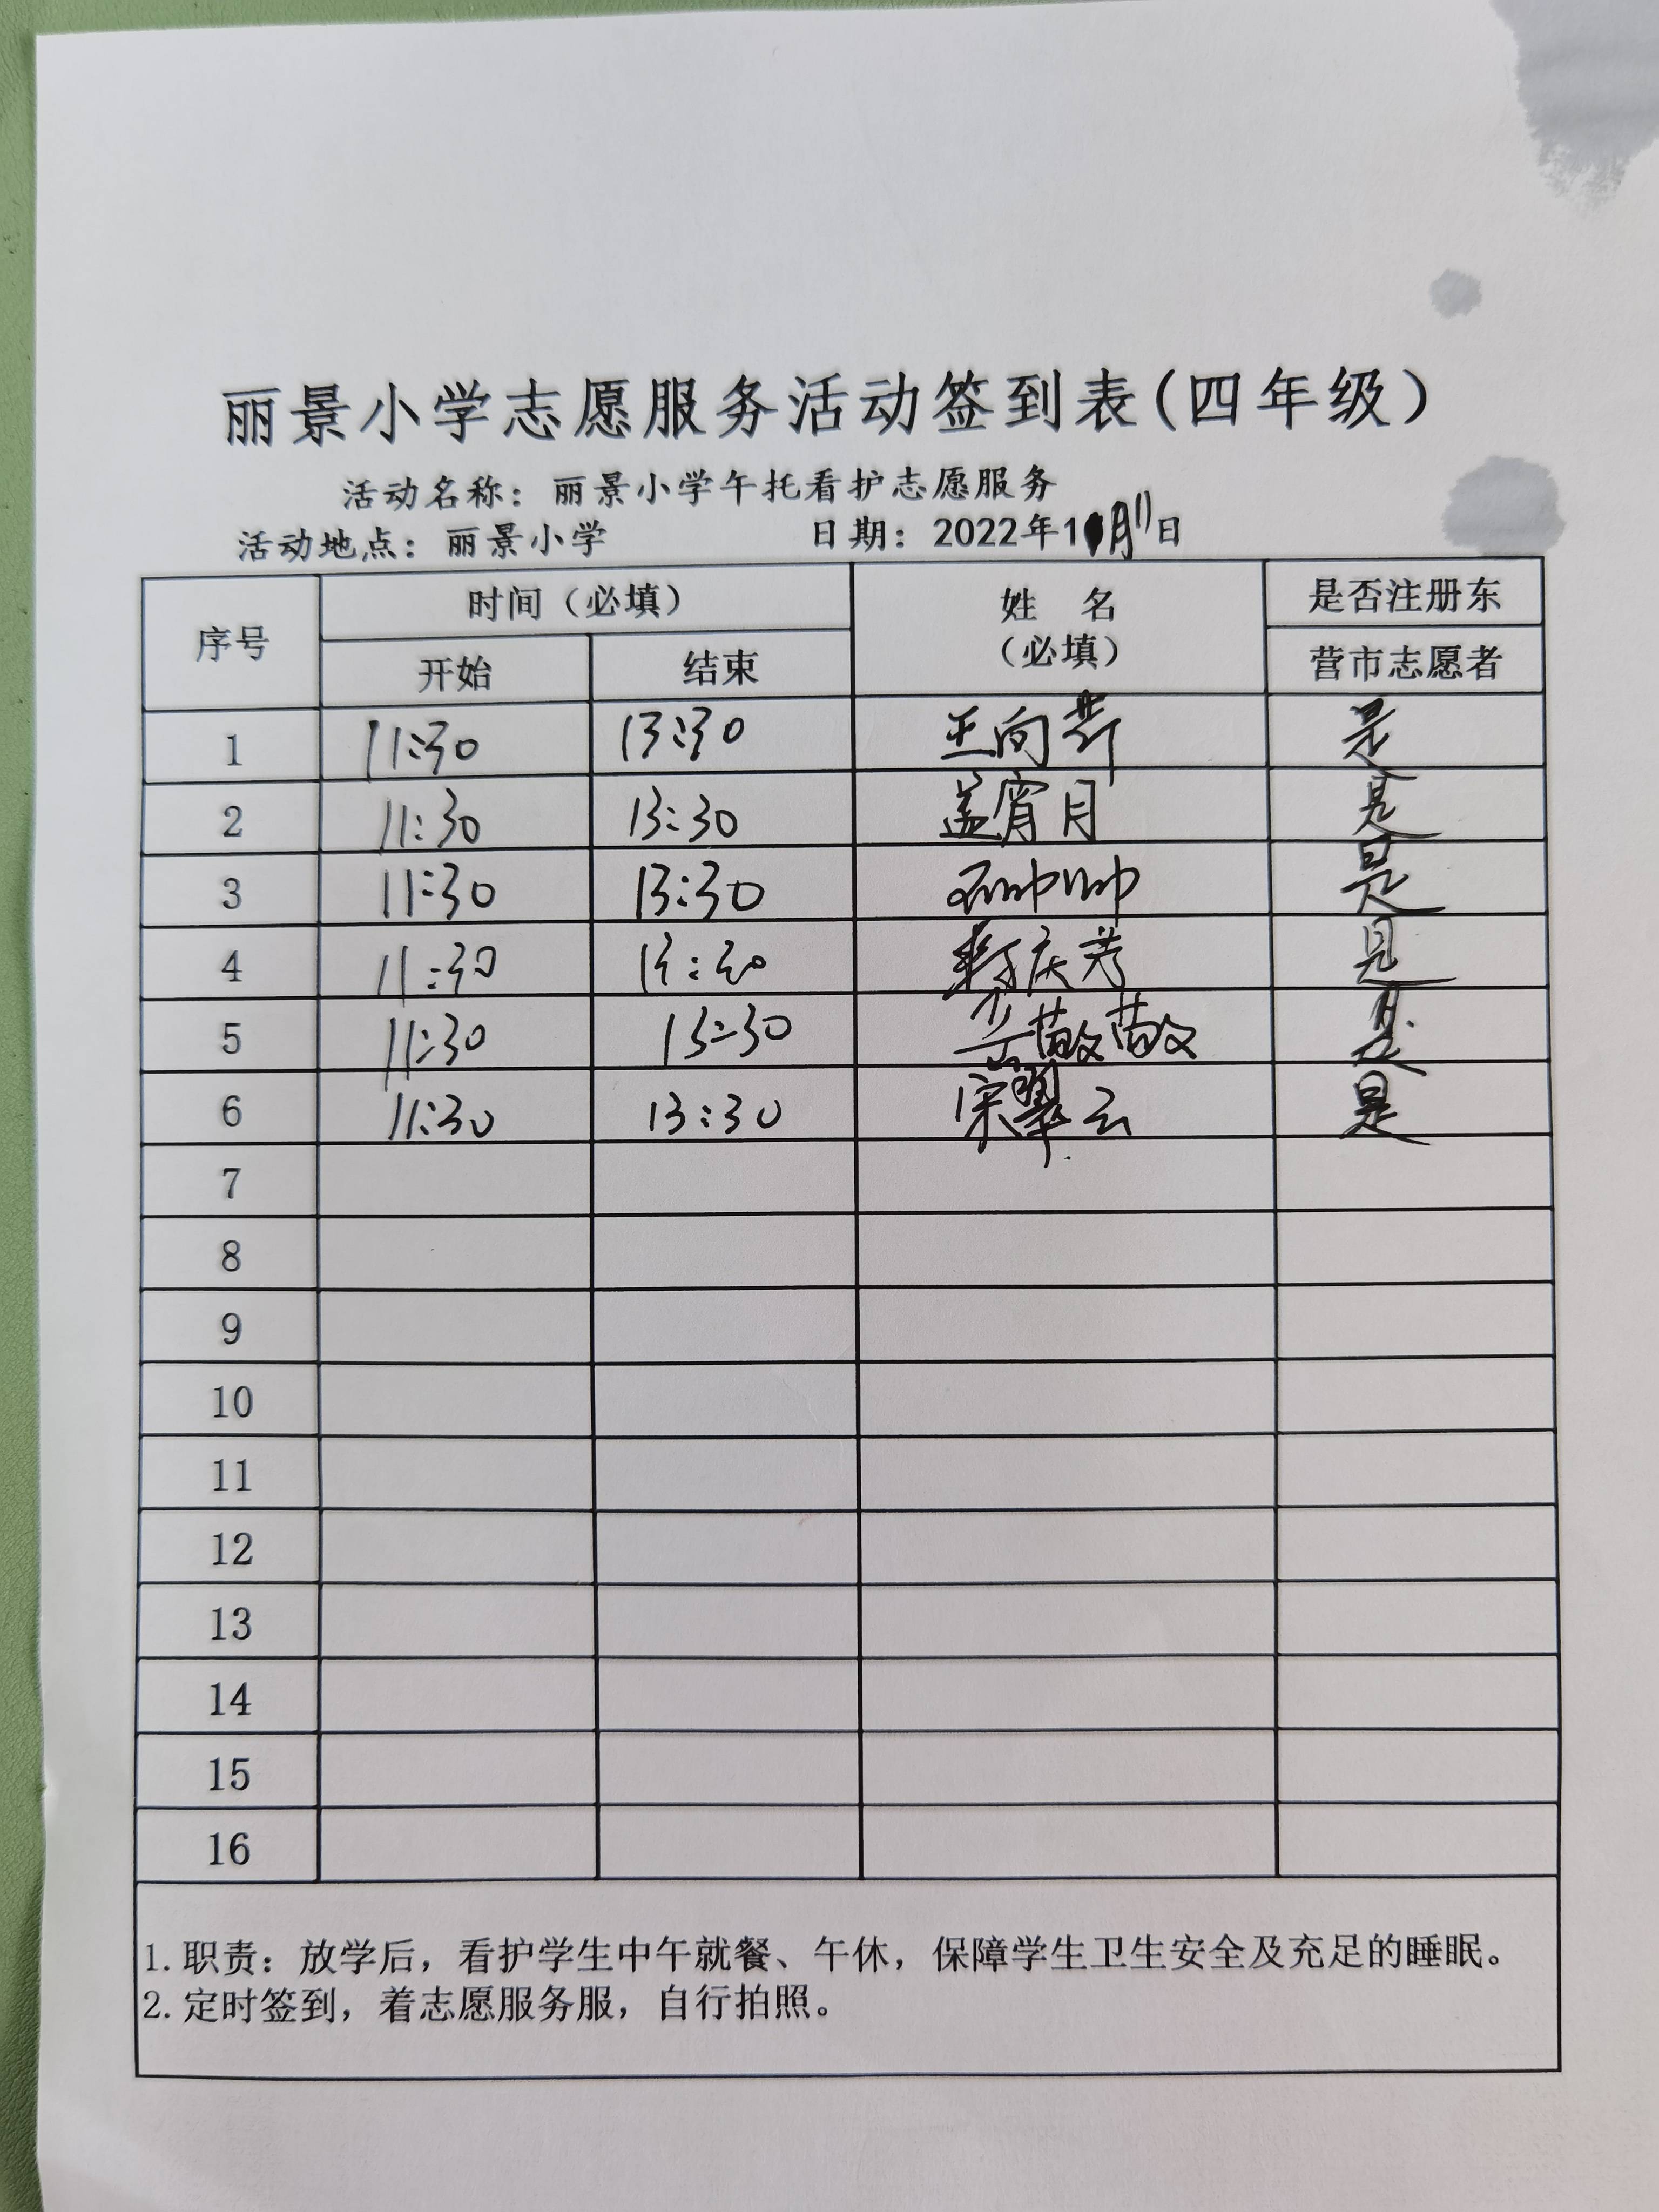 丽景小学志愿服务活动签到表(四年级)
活动名称：丽景小学午托看护志愿服务
活动地点：丽景小学 日期：2022年1月11日
序号 时间（必填） 姓 名（必填） 是否注册东营市志愿者
开始 结束
1 11:30 13:30 王向芹 是
2 11:30 13:30 盖宵月 是
3 11:30 13:30 石帅帅 是
4 11:30 13:30 庆芳 是
5 11:30 13:30 敬敬 是
6 11:30 13:30 宋翠云 是
7
8
9
10
11
12
13
14
15
16
1.职责：放学后，看护学生中午就餐、午休，保障学生卫生安全及充足的睡眠。
2.定时签到，着志愿服务服，自行拍照。